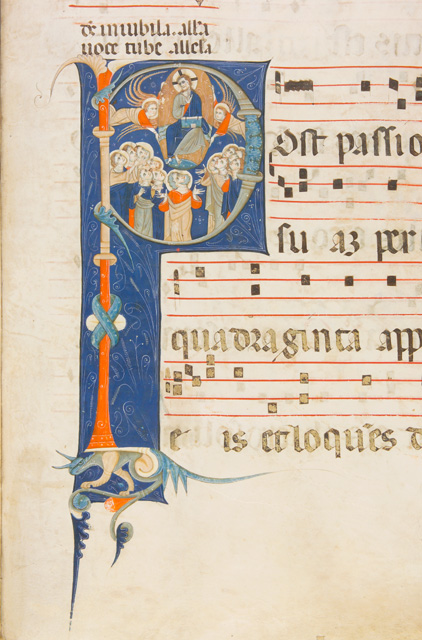 de in iubila. all'a
uoce tube .all'ela
Post passio
su az per
quadraginta app
e is et loques d